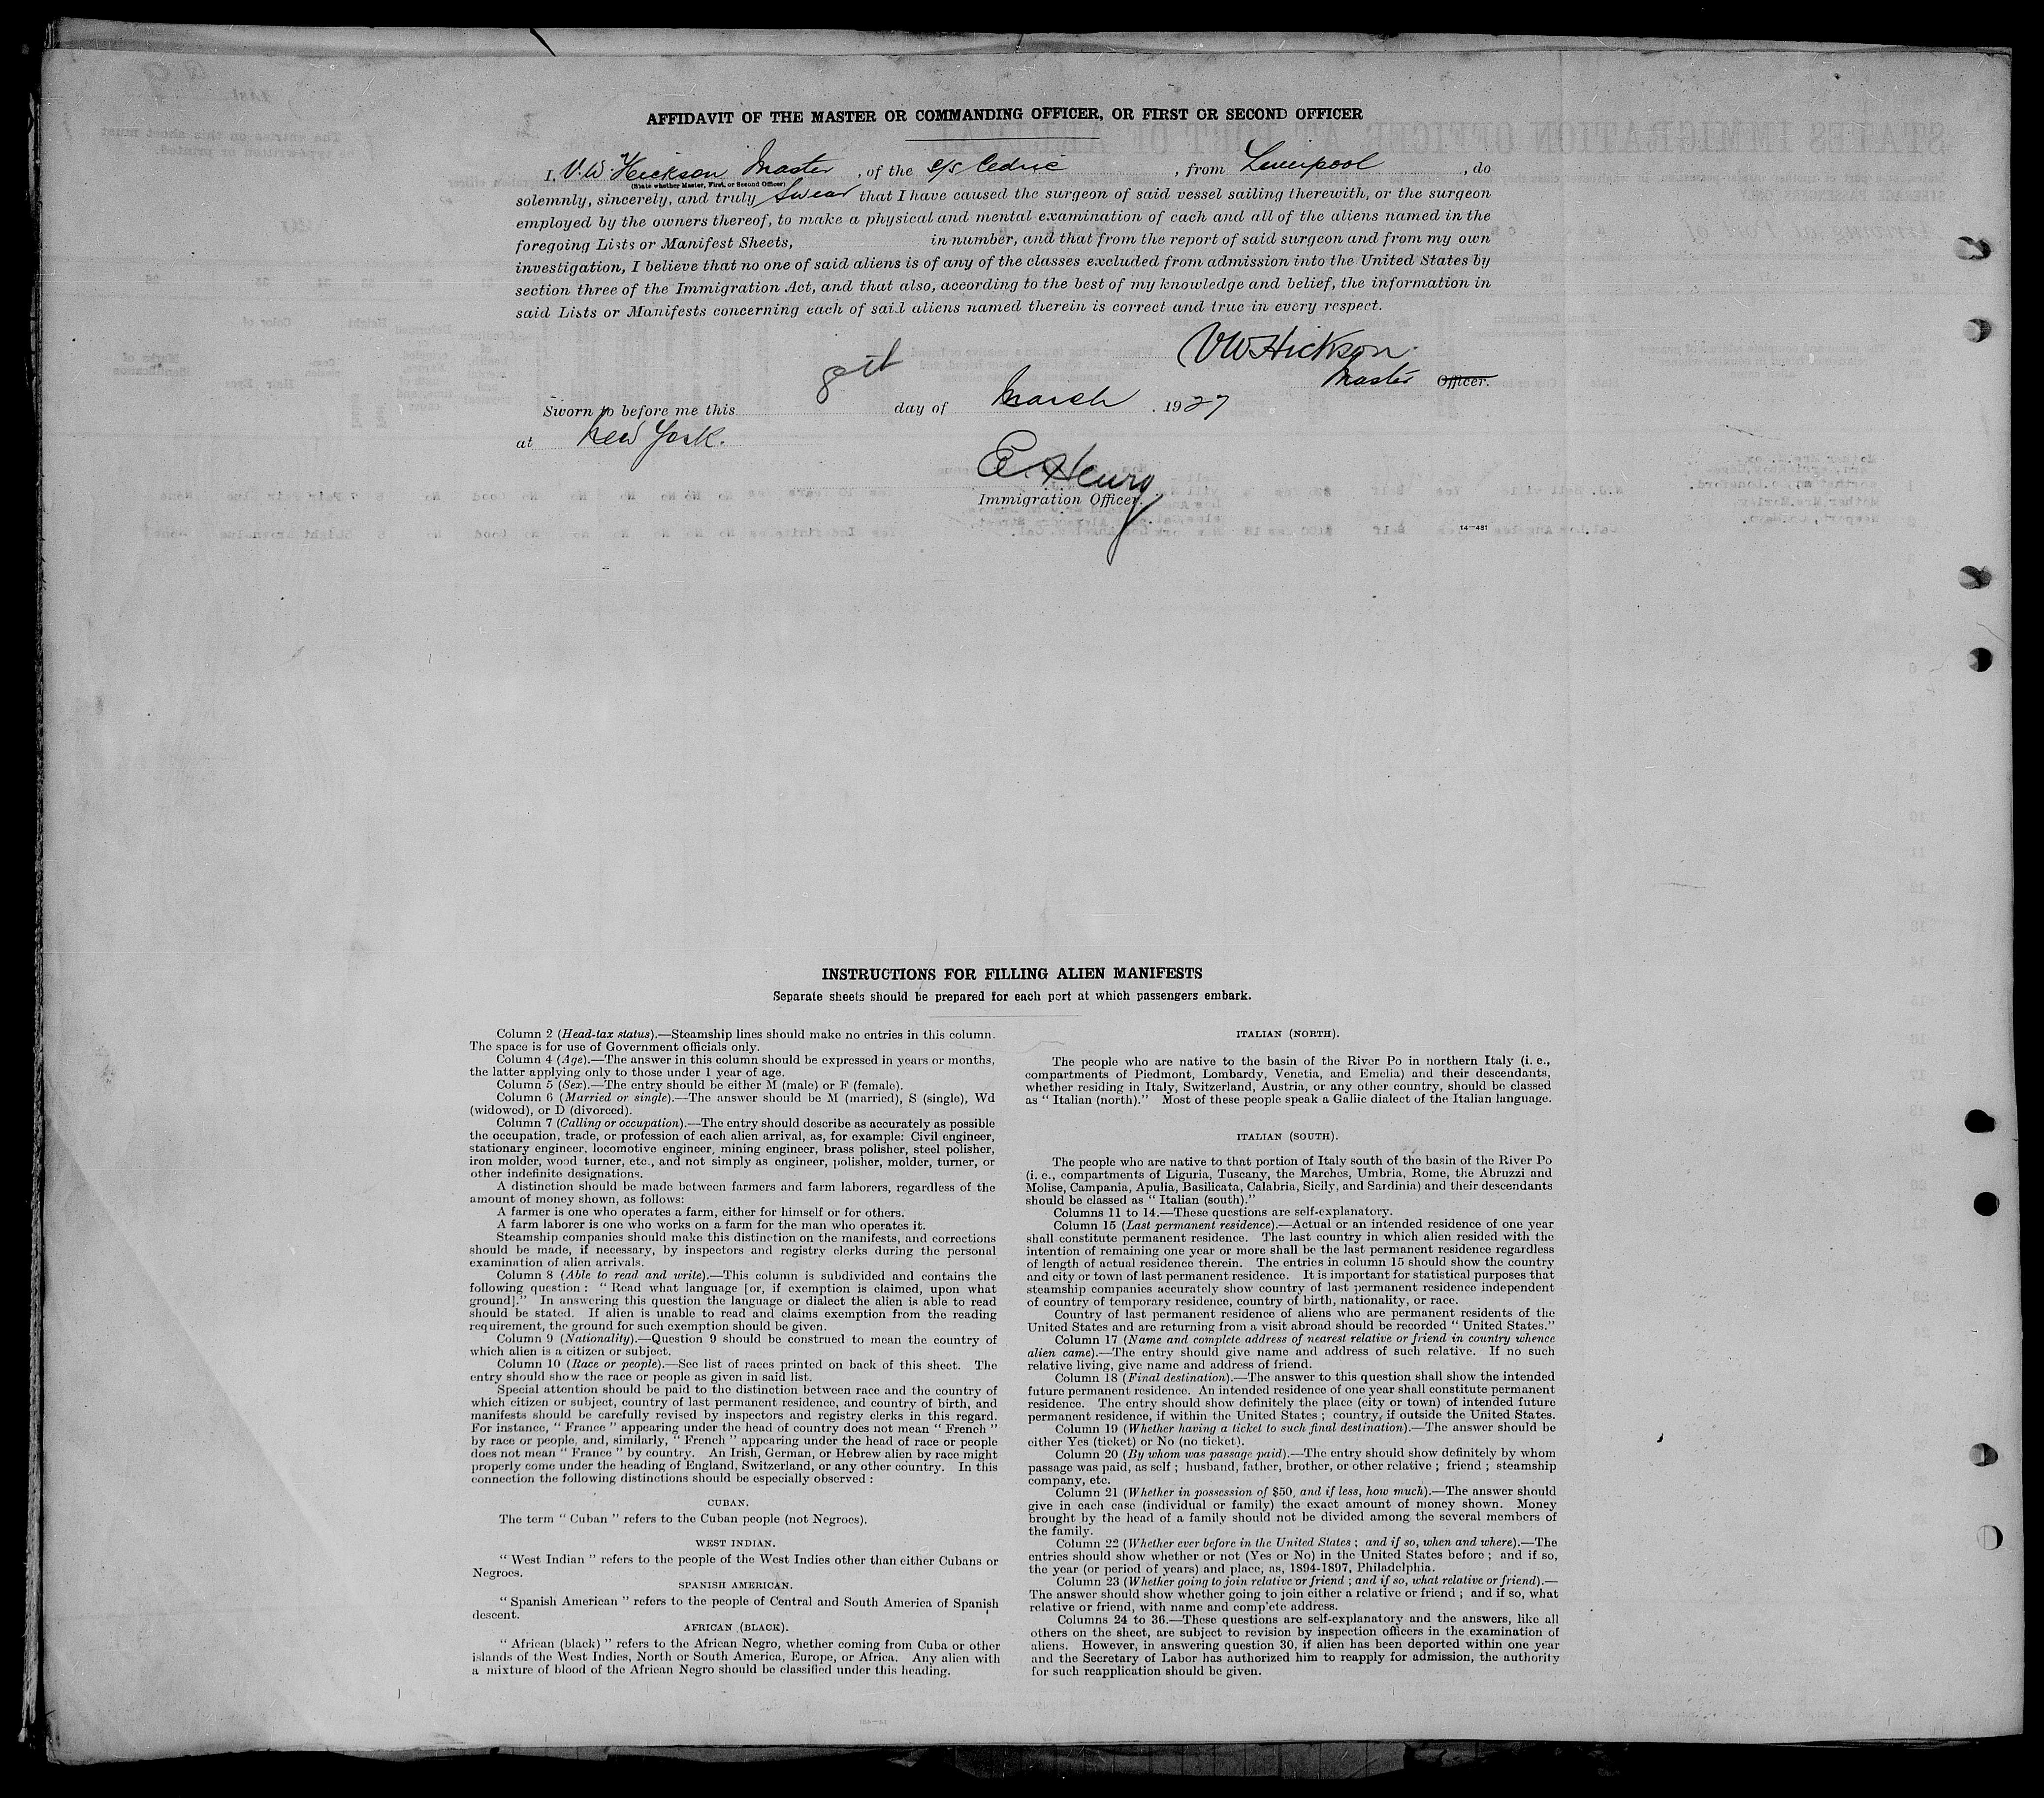 AFFIDAVIT OF THE MASTER OR COMMANDING OFFICER, OR FIRST OR SECOND OFFICER
I, V. W. Hickson Master , of the S/S Cedric , from Liverpool , do
(State whether Master, First, or Second Officer)
solemnly, sincerely, and truly Swear that I have caused the surgeon of said vessel sailing therewith, or the surgeon
employed by the owners thereof, to make a physical and mental examination of each and all of the aliens named in the
foregoing Lists or Manifest Sheets, in number, and that from the report of said surgeon and from my own
investigation, I believe that no one of said aliens is of any of the classes excluded from admission into the United States by
section three of the Immigration Act, and that also, according to the best of my knowledge and belief, the information in
said Lists or Manifests concerning each of said aliens named therein is correct and true in every respect.
VW Hickson.
Master Officer.
Sworn to before me this 8th day of March , 1927
at New York.
E. Henry
Immigration Officer.
14—481
INSTRUCTIONS FOR FILLING ALIEN MANIFESTS
Separate sheets should be prepared for each port at which passengers embark.
Column 2 (Head-tax status).—Steamship lines should make no entries in this column.
The space is for use of Government officials only.
Column 4 (Age).—The answer in this column should be expressed in years or months,
the latter applying only to those under 1 year of age.
Column 5 (Sex).—The entry should be either M (male) or F (female).
Column 6 (Married or single).—The answer should be M (married), S (single), Wd
(widowed), or D (divorced).
Column 7 (Calling or occupation).—The entry should describe as accurately as possible
the occupation, trade, or profession of each alien arrival, as, for example: Civil engineer,
stationary engineer, locomotive engineer, mining engineer, brass polisher, steel polisher,
iron molder, wood turner, etc., and not simply as engineer, polisher, molder, turner, or
other indefinite designations.
A distinction should be made between farmers and farm laborers, regardless of the
amount of money shown, as follows:
A farmer is one who operates a farm, either for himself or for others.
A farm laborer is one who works on a farm for the man who operates it.
Steamship companies should make this distinction on the manifests, and corrections
should be made, if necessary, by inspectors and registry clerks during the personal
examination of alien arrivals.
Column 8 (Able to read and write).—This column is subdivided and contains the
following question: “ Read what language [or, if exemption is claimed, upon what
ground].” In answering this question the language or dialect the alien is able to read
should be stated. If alien is unable to read and claims exemption from the reading
requirement, the ground for such exemption should be given.
Column 9 (Nationality).—Question 9 should be construed to mean the country of
which alien is a citizen or subject.
Column 10 (Race or people).—See list of races printed on back of this sheet. The
entry should show the race or people as given in said list.
Special attention should be paid to the distinction between race and the country of
which citizen or subject, country of last permanent residence, and country of birth, and
manifests should be carefully revised by inspectors and registry clerks in this regard.
For instance, “ France ” appearing under the head of country does not mean “ French ”
by race or people, and, similarly, “ French ” appearing under the head of race or people
does not mean “ France ” by country. An Irish, German, or Hebrew alien by race might
properly come under the heading of England, Switzerland, or any other country. In this
connection the following distinctions should be especially observed :
CUBAN.
The term “ Cuban ” refers to the Cuban people (not Negroes).
WEST INDIAN.
“ West Indian ” refers to the people of the West Indies other than either Cubans or
Negroes.
SPANISH AMERICAN.
“ Spanish American ” refers to the people of Central and South America of Spanish
descent.
AFRICAN (BLACK).
“ African (black) ” refers to the African Negro, whether coming from Cuba or other
islands of the West Indies, North or South America, Europe, or Africa. Any alien with
a mixture of blood of the African Negro should be classified under this heading.
ITALIAN (NORTH).
The people who are native to the basin of the River Po in northern Italy (i. e.,
compartments of Piedmont, Lombardy, Venetia, and Emelia) and their descendants,
whether residing in Italy, Switzerland, Austria, or any other country, should be classed
as “ Italian (north).” Most of these people speak a Gallic dialect of the Italian language.
ITALIAN (SOUTH).
The people who are native to that portion of Italy south of the basin of the River Po
(i. e., compartments of Liguria, Tuscany, the Marches, Umbria, Rome, the Abruzzi and
Molise, Campania, Apulia, Basilicata, Calabria, Sicily, and Sardinia) and their descendants
should be classed as “ Italian (south).”
Columns 11 to 14.—These questions are self-explanatory.
Column 15 (Last permanent residence).—Actual or an intended residence of one year
shall constitute permanent residence. The last country in which alien resided with the
intention of remaining one year or more shall be the last permanent residence regardless
of length of actual residence therein. The entries in column 15 should show the country
and city or town of last permanent residence. It is important for statistical purposes that
steamship companies accurately show country of last permanent residence independent
of country of temporary residence, country of birth, nationality, or race.
Country of last permanent residence of aliens who are permanent residents of the
United States and are returning from a visit abroad should be recorded “ United States.”
Column 17 (Name and complete address of nearest relative or friend in country whence
alien came).—The entry should give name and address of such relative. If no such
relative living, give name and address of friend.
Column 18 (Final destination).—The answer to this question shall show the intended
future permanent residence. An intended residence of one year shall constitute permanent
residence. The entry should show definitely the place (city or town) of intended future
permanent residence, if within the United States ; country, if outside the United States.
Column 19 (Whether having a ticket to such final destination).—The answer should be
either Yes (ticket) or No (no ticket).
Column 20 (By whom was passage paid).—The entry should show definitely by whom
passage was paid, as self ; husband, father, brother, or other relative ; friend ; steamship
company, etc.
Column 21 (Whether in possession of $50, and if less, how much).—The answer should
give in each case (individual or family) the exact amount of money shown. Money
brought by the head of a family should not be divided among the several members of
the family.
Column 22 (Whether ever before in the United States ; and if so, when and where).—The
entries should show whether or not (Yes or No) in the United States before ; and if so,
the year (or period of years) and place, as, 1894-1897, Philadelphia.
Column 23 (Whether going to join relative or friend ; and if so, what relative or friend).—
The answer should show whether going to join either a relative or friend ; and if so, what
relative or friend, with name and complete address.
Columns 24 to 36.—These questions are self-explanatory and the answers, like all
others on the sheet, are subject to revision by inspection officers in the examination of
aliens. However, in answering question 30, if alien has been deported within one year
and the Secretary of Labor has authorized him to reapply for admission, the authority
for such reapplication should be given.